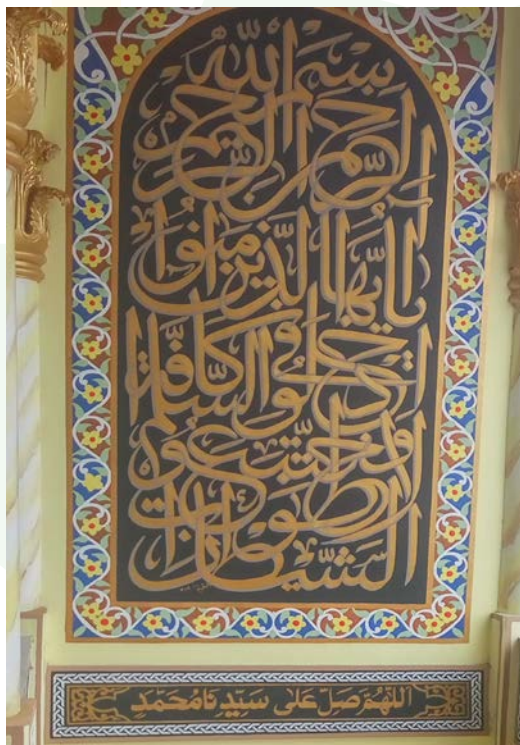 بسم الله
الرحمن الرحيم
يا أيها الذين آمنوا
ادخلوا في السلم كافة
ولا تتبعوا
خطوات
الشيطان
اللهم صل على سيدنا محمد